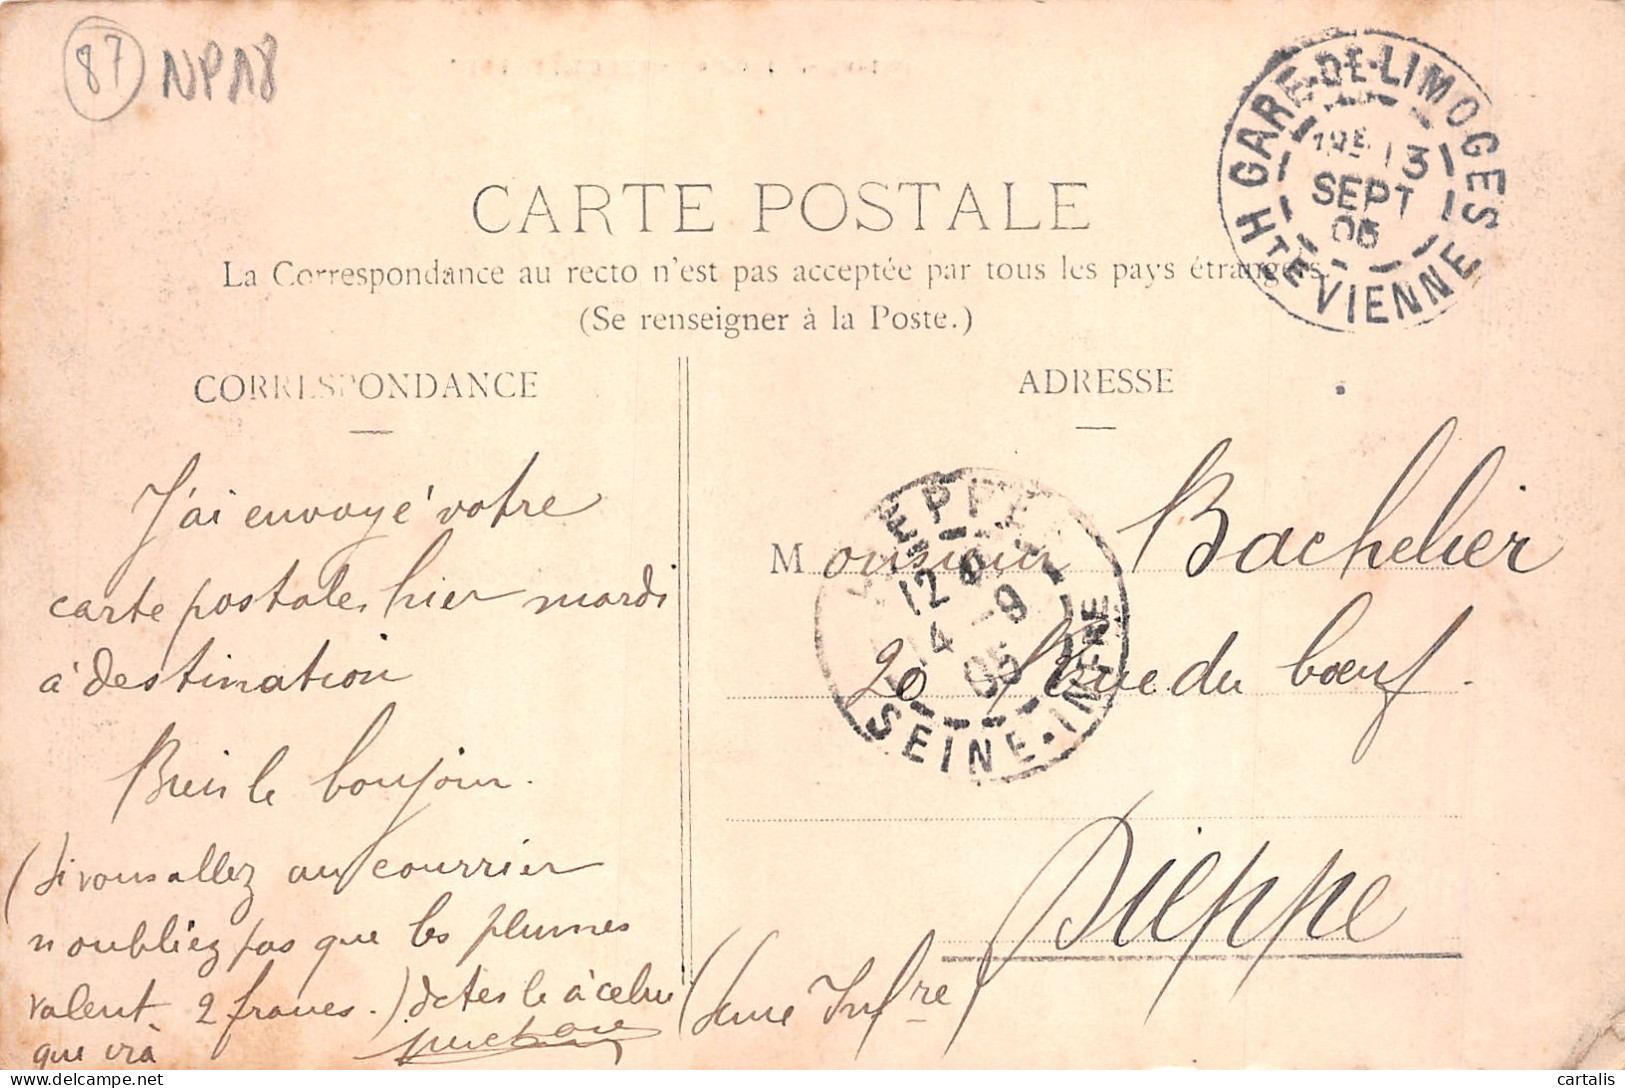 87 NPA8
GARE-DE-LIMOGES
1RE 13
SEPT
05
HTE VIENNE
CARTE POSTALE
La Correspondance au recto n'est pas acceptée par tous les pays étrangers.
(Se renseigner à la Poste.)
CORRESPONDANCE
J'ai envoyé votre
carte postale, hier mardi
à destination
Bien le bonjour.
(Si vous allez au courrier
n'oubliez pas que les plumes
valent 2 francs.) dites le à celui
que ira
ADRESSE
Monsieur Bachelier
20 Rue du boeuf.
Dieppe
(Seine Infre)
DIEPPE
12
14 -9
05
SEINE-INFRE
cartalis